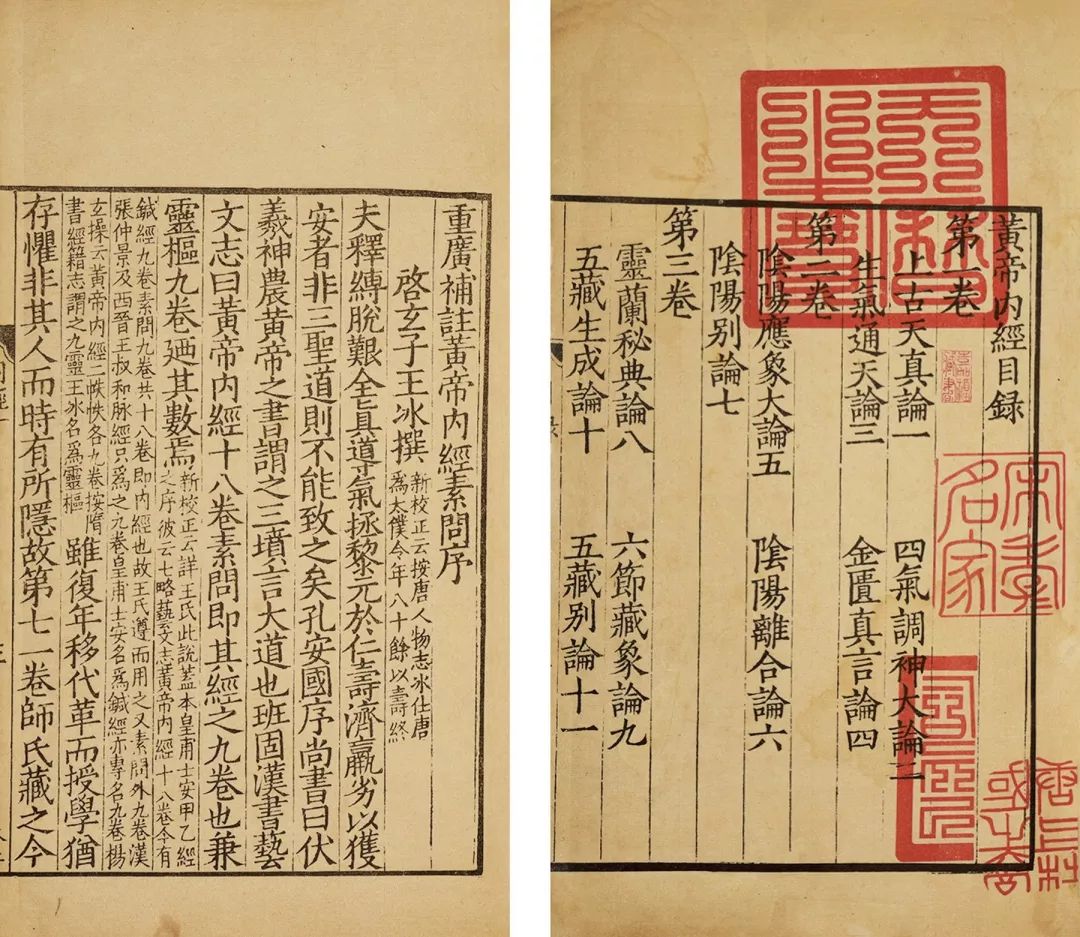 黃帝内經目録
第一卷
上古天真論一 四氣調神大論二
生氣通天論三 金匱真言論四
第二卷
陰陽應象大論五 陰陽離合論六
陰陽别論七
第三卷
靈蘭秘典論八 六節藏象論九
五藏生成論十 五藏别論十一
重廣補註黃帝内經素問序
啓玄子王冰撰 新校正云按唐人物志冰仕唐
爲太僕令年八十餘以壽終
夫釋縛脫艱全真導氣拯黎元於仁壽濟羸劣以獲
安者非三聖道則不能致之矣孔安國序尚書曰伏
羲神農黃帝之書謂之三墳言大道也班固漢書藝
文志曰黃帝内經十八卷素問即其經之九卷也兼
靈樞九卷廼其數焉 新校正云詳王氏此說蓋本皇甫士安甲乙經
之序彼云七略藝文志黃帝内經十八卷今有
鍼經九卷素問九卷共十八卷即内經也故王氏遵而用之又素問外九卷漢
張仲景及西晉王叔和脉經只爲之九卷皇甫士安名爲鍼經亦專名九卷楊
玄操云黃帝内經二帙帙各九卷按隋
書經籍志謂之九靈王冰名爲靈樞 雖復年移代革而授學猶
存懼非其人而時有所隱故第七一卷師氏藏之今